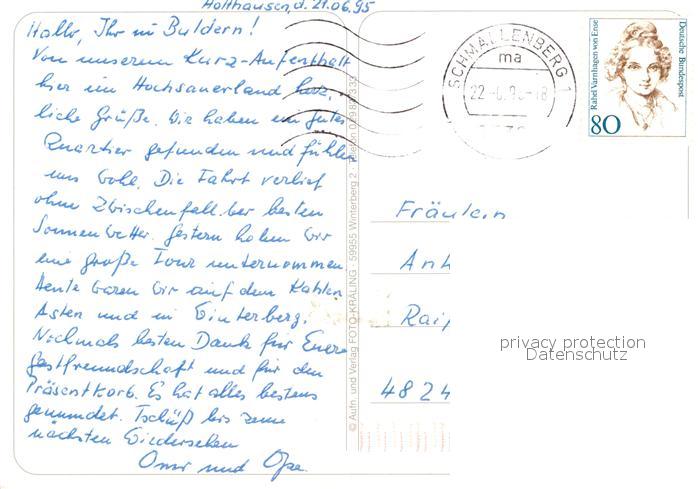 Holthausen, d. 21.06.95
Hallo, Ihr in Buldern!
Von unserem Kurz-Aufenthalt
hier im Hochsauerland herz-
liche Grüße. Wir haben ein gutes
Quartier gefunden und fühlen
uns wohl. Die Fahrt verlief
ohne Zwischenfall bei besten
Sonnenwetter. Gestern haben wir
eine große Tour unternommen
Heute waren wir auf dem Kahlen
Asten und in Winterberg.
Nochmals besten Dank für Eure
Gastfreundschaft und für den
Präsentkorb. Es hat alles bestens
gemundet. Tschüß bis zum
nächsten Wiedersehen
Oma und Opa.
© Aufn. und Verlag FOTO-KRALING · 59955 Winterberg 2
SCHMALLENBERG 1
ma
Rahel Varnhagen von Ense
Deutsche Bundespost
80
Fräulein
4824
privacy protection
Datenschutz